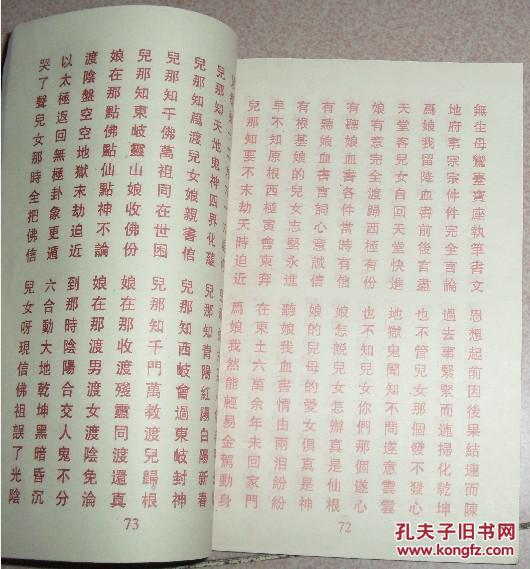 無生母鸞臺寶座執筆書文
思想起前因後果結連而陳
地府事宗宗件件完全言論
過去事緊緊而連掃化乾坤
爲娘我留降血書前後言盡
也不管兒女那個發不發心
天堂客兒女自回天堂快進
地獄鬼聞知不問遂意雲雲
娘有意完全渡歸西極有份
也不知兒女你們那個遂心
有聽娘血書各件當時有信
娘怎說兒女怎辦真是仙根
有聽娘血書言詞心意誠信
娘的兒母的愛女俱真是神
有根基娘的兒女志堅永進
聽娘我血書情由兩泪紛紛
早不知原根西極寅會東奔
在東土六萬余年未回家門
兒那知要不末劫天時迫近
爲娘我然能輕易金駕動身
72
兒那知天地鬼神四界化蘊
兒那知青陽紅陽白陽新春
兒那知爲渡兒女娘親書信
兒那知西岐會過東岐封神
兒那知千佛萬祖同在世困
兒那知千門萬教渡兒歸根
兒那知東岐靈山娘收佛份
娘在那收渡殘靈同渡還真
娘在那點佛點仙點神不論
娘在那渡男渡女渡陰免淪
渡陰盤空空地獄末劫迫近
到那時陰陽合交人鬼不分
以太極返回無極卦象更遁
六合動大地乾坤黑暗昏沉
哭了聲兒女那時全把佛信
兒女呀現信佛祖誤了光陰
73
孔夫子旧书网
KONGFZ.COM